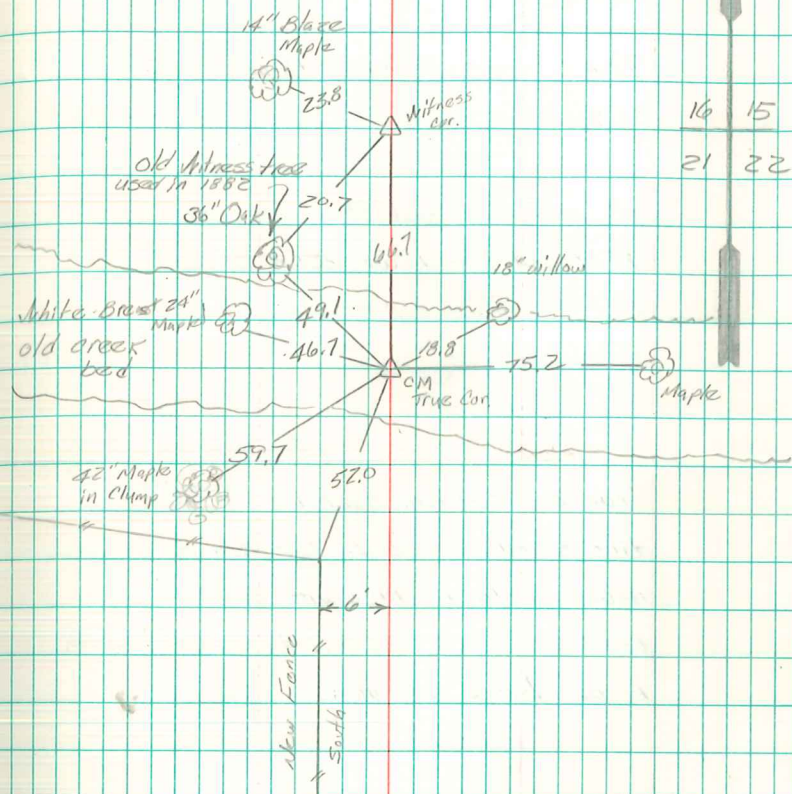 14" Blaze
Maple
23.8
Witness
Cor.
16 15
21 22
old Witness tree
used in 1882
36" Oak
20.7
66.7
18" Willow
White-Breast
old creek
bed
24"
Maple
49.1
46.7
18.8
75.2
Maple
CM
True Cor.
59.7
52.0
42" Maple
in Clump
6'
New Fence
South